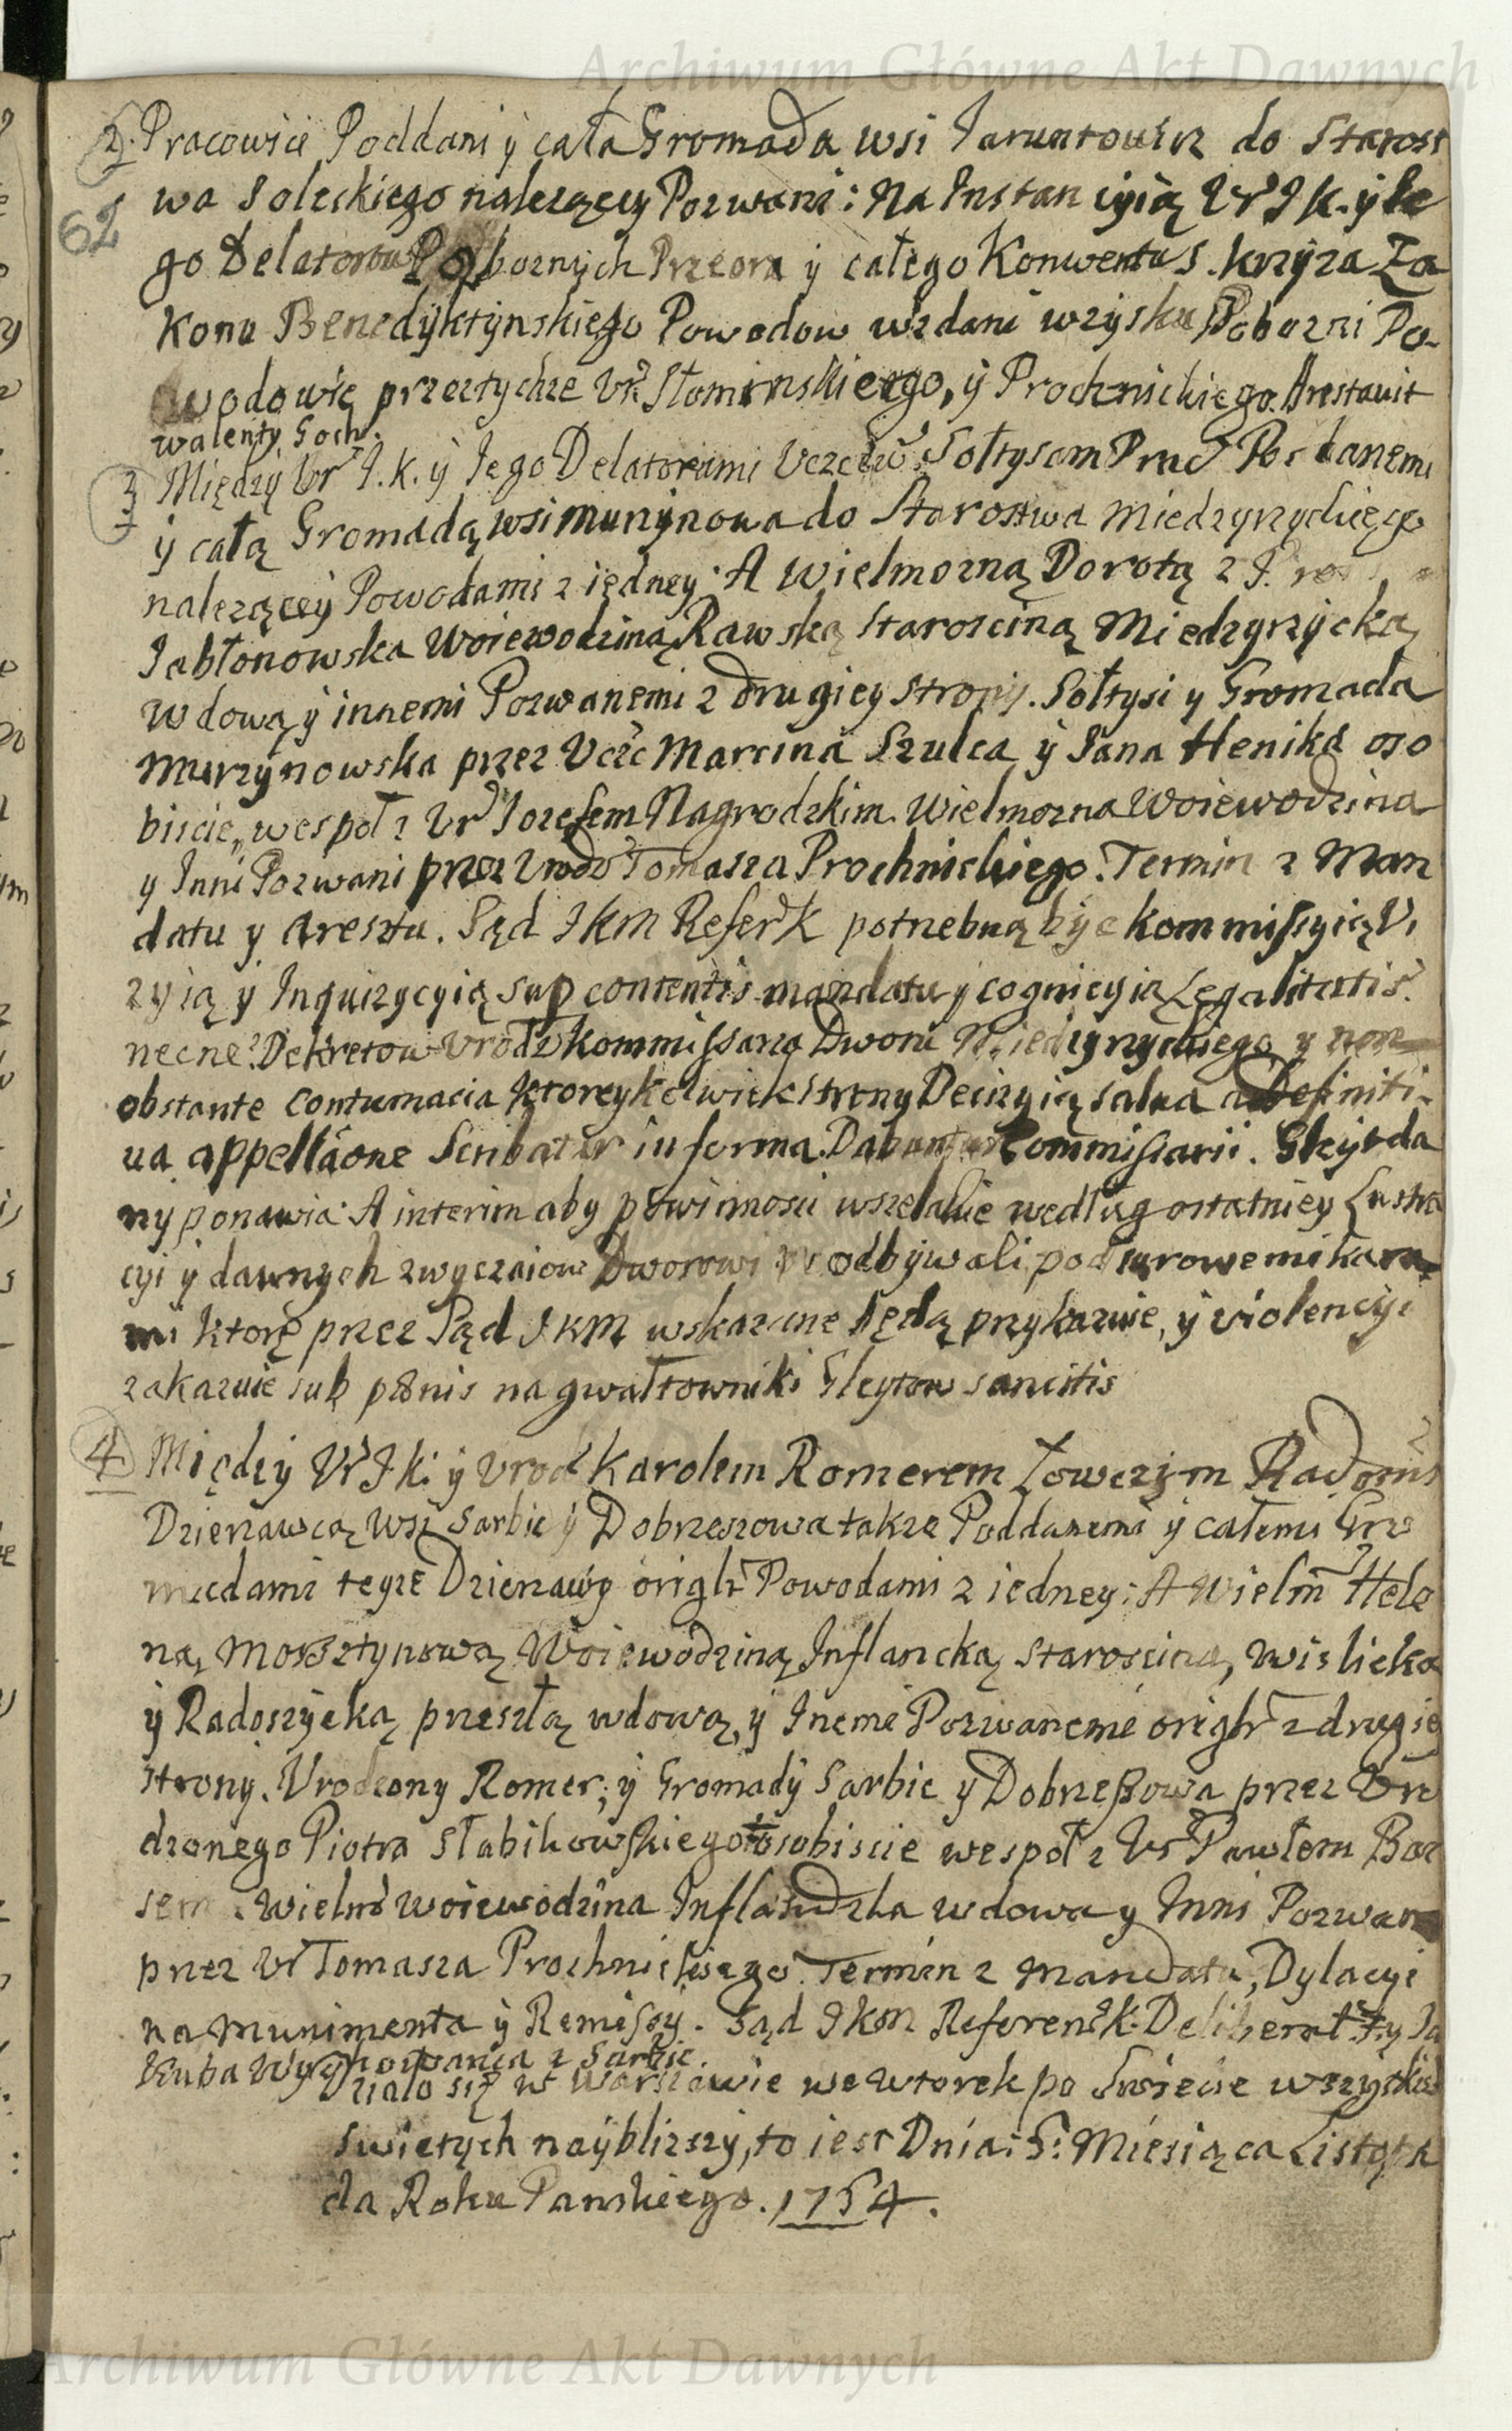 Archiwum Główne Akt Dawnych
2. Pracowici Poddani y cała Gromada wsi Jaruntowiz do Starost
62 wa Soleckiego nalezący Pozwani: Na Instancyią Ur I K. y Je
go Delatorow Pobornych Przeora y całego Konwentu S. krzyza Za
konu Benedyktynskiego Powodow wzdani wzyscy Pobozni Po-
wodowie przez tychze Ur. Słominskiego, y Prochnickiego. Arestavit
walenty Goch.
3 Między Ur I. K. y Jego Delatorami Uczciw Sołtysom Prac Poddanemi
y całą Gromadą wsi Murzynowa do Starostwa Miedzyrzyckiego
nalezącey Powodami z iedney: A Wielmozną Dorotą z
Jabłonowska Woiewodziną Rawską Starosciną Miedzyrzycką
wdową y innemi Pozwanemi z drugiey strony. Sołtysi y Gromada
Murzynowska przez Uczc Marcina Szulca y Jana Henika oso
biscie, wespoł z Ur Jozefem Nagrodzkim. Wielmozna Woiewodzina
y Inni Pozwani przez Urodz Tomasza Prochnickiego. Termin z Man
datu y Aresztu. Sąd I K M Refer K potrzebną byc kommissyią Vi
zyią y Inquizycyią sup contentis mandatu y cognicyią Legalitatis
necne? Dekretow Urodz Kommissarzą Dworu Miedzyrzyckiego y non
obstante contumacia ktoreykolwiek strony Decizyią salva a Definiti-
va appellaone Scribatur in forma. Dabuntur Commissarii. Gleyt da
ny ponawia. A interim aby powinnosci wszelakie według ostatniey Lustra
cyi y dawnych zwyczaiow Dworowi odbywali pod surowemi kara
mi ktore przez Sąd I K M wskazane będą przykazuie, y violencyi
zakazuie sub pœnis na gwałtowniki Gleytow sancitis
4 Między Ur I K: y Urodz Karolem Romerem Łowczym Radoms
Dzierzawcą wsi Sarbic y Dobrzeszowa takze Poddanemi y całemi Gro
madami teyze Dzierzawy origlr Powodami z iedney: A Wielm Hele
ną Morsztynową Woiewodziną Inflancką Starosciną, Wislicką
y Radoszycką, przeszłą wdową, y Inemi Pozwanemi origlr z drugie
strony. Urodzony Romer, y Gromady Sarbic y Dobrzeszowa przez Uro
dzonego Piotra Słabikowskiego osobiscie wespoł z Ur Pawłem Bar
sem. Wielm Woiewodzina Inflandzka wdowa y Inni Pozwani
przez Ur Tomasza Prochnickiego. Termin z Mandatu, Dylacyi
na Munimenta y Remissy. Sąd I K M Referenk. Deliberat. Ja
kuba z Sarbic.
Działo się w Warszawie we wtorek po Swiecie wszystkich
Swietych nayblizszy, to iest Dnia: 5: Miesiąca Listopa
da Roku Panskiego. 1754.
Archiwum Główne Akt Dawnych